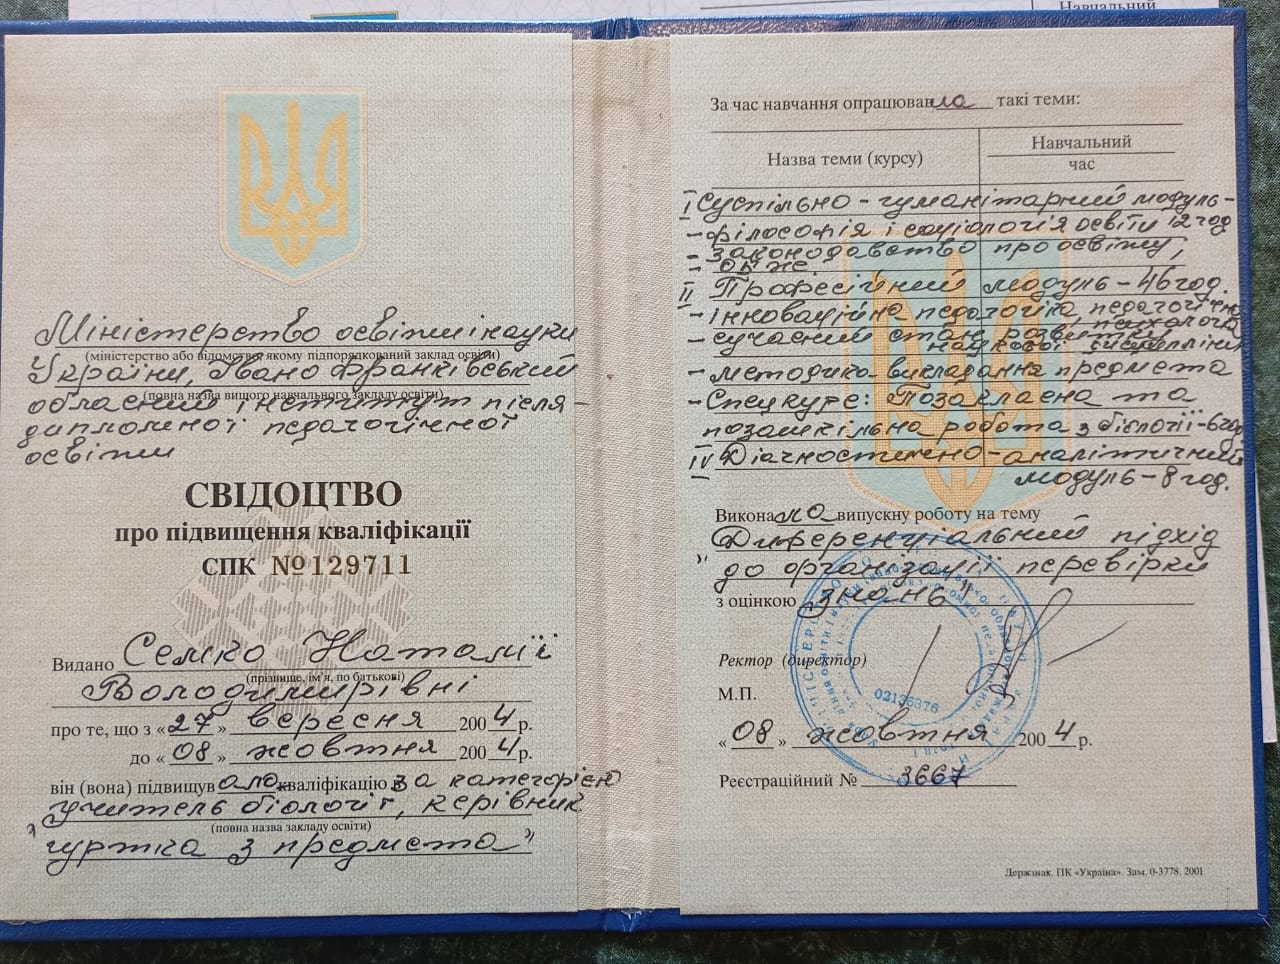 Міністерство освіти і науки
(міністерство або відомство, якому підпорядкований заклад освіти)
України, Івано Франківський
(повна назва вищого навчального закладу освіти)
обласний інститут після-
дипломної педагогічної
освіти
СВІДОЦТВО
про підвищення кваліфікації
СПК №129711
Видано Семко Наталії
(прізвище, ім'я, по батькові)
Володимирівні
про те, що з «27» вересня 2004 р.
до «08» жовтня 2004 р.
він (вона) підвищув ала кваліфікацію за категорією
"учитель біології, керівник
(повна назва закладу освіти)
гуртка з предмета"
Навчальний
За час навчання опрацювала такі теми:
Назва теми (курсу)
Навчальний
час
I Суспільно-гуманітарний модуль-
- філософія і соціологія освіти 12 год
- законодавство про освіту,
II Професійний модуль - 46 год.
- Інноваційна педагогіка, педагогічна
психологія
- сучасний стан розвитку
наукової дисципліни
- методика викладання предмета
- Спецкурс: Позакласна та
позашкільна робота з біології-6год
IV Діагностично-аналітичний
модуль - 8 год.
Виконала випускну роботу на тему
"Диференціальний підхід
до організації перевірки
з оцінкою знань"
Ректор (директор)
М.П.
02136376
«08» жовтня 2004 р.
Реєстраційний № 3667
Держзнак. ПК «Україна». Зам. 0-3778. 2001